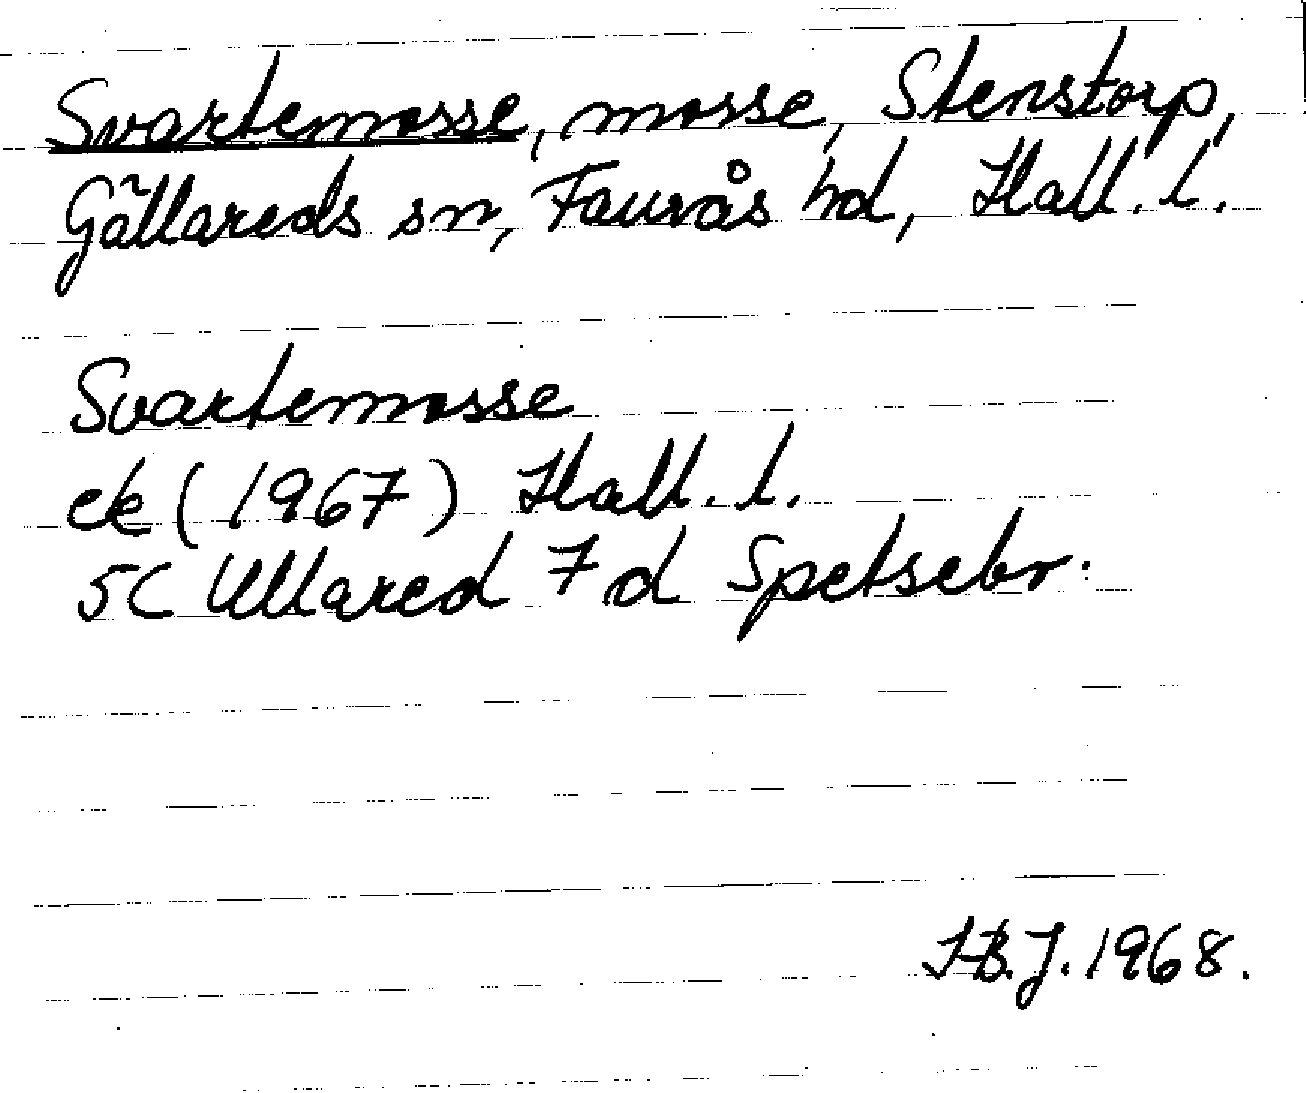 Svartemosse, mosse, Stenstorp,
Gällareds sn, Faurås hd, Hall. l.
Svartemosse
ek (1967) Hall. l.
5C Ullared 7 d Spetsebr.
I.B.J. 1968.